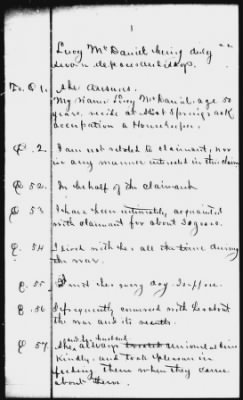 1
Lucy McDaniel being duly
sworn deposes and says.
To Q 1. She answers.
My name Lucy McDaniel age 50
years, reside at Hot Springs, Ark
occupation a Housekeeper.
Q. 2. I am not related to claimant, nor
in any manner interested in this claim
Q 52. In behalf of the claimant
Q 53 I have been intimately acquainted
with claimant for about 30 years.
Q. 54 I lived with her all the time during
the war.
Q. 55 I met her every day
Q. 56 I frequently conversed with her about
the war and its results.
Q 57 and her husband
She always treated union soldiers
kindly, and took pleasure in
feeding them when they came
about them.